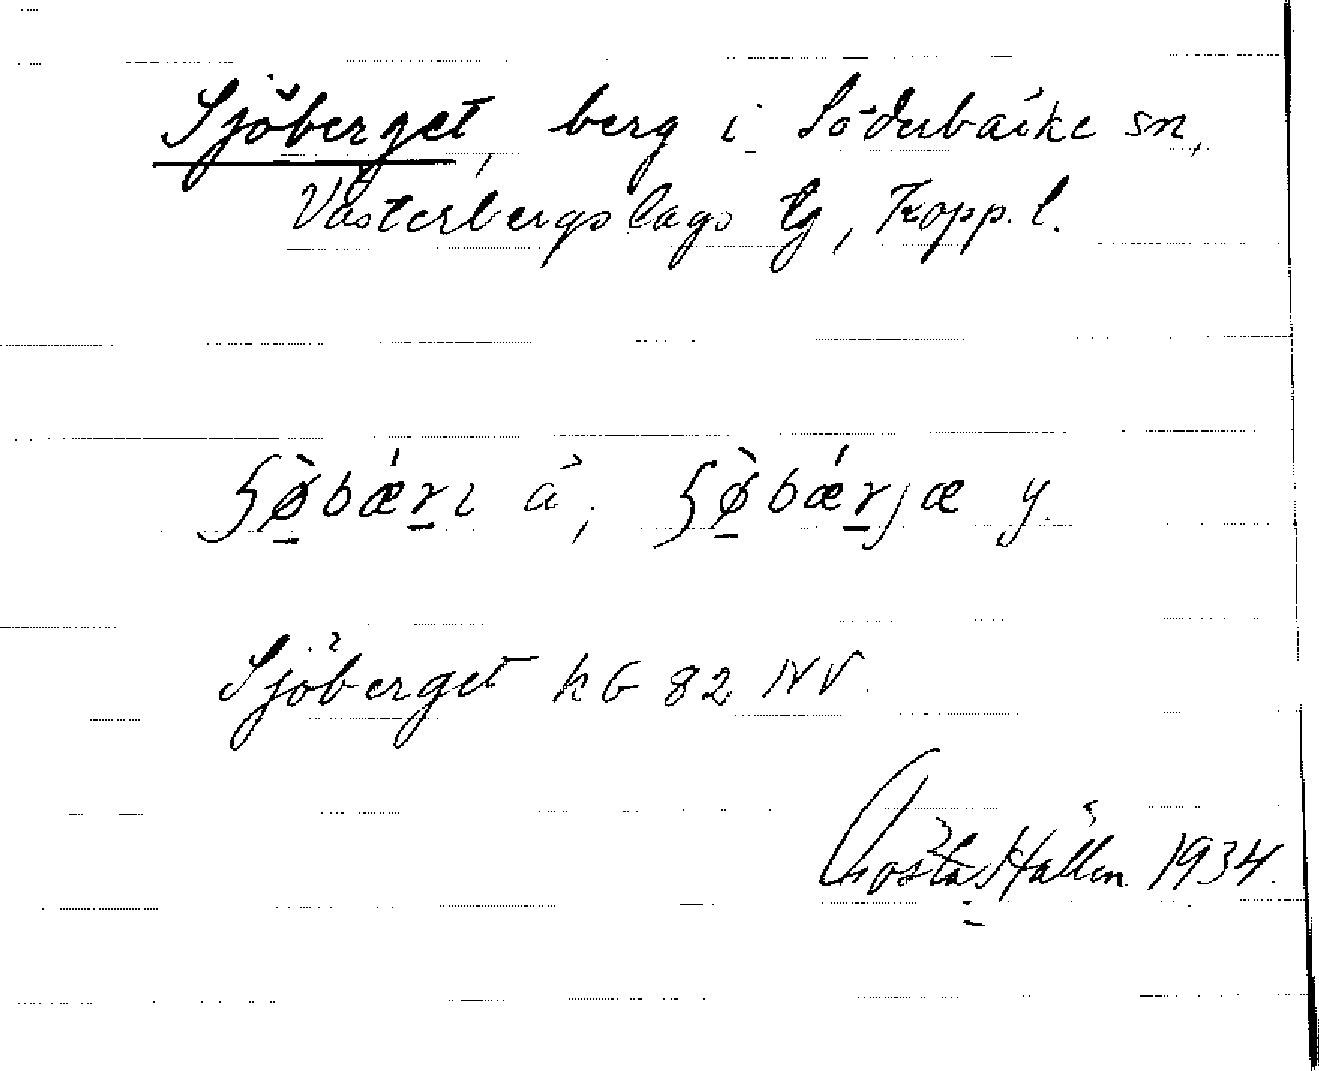 Sjöberget, berg i Söderbärke sn,
Västerbergslags tg, Kopp. l.
ʃø̀bǽrɩ ä, ʃø̀bǽrjæ y.
Sjöberget kG 82 NV.
Gösta Hallén 1934.